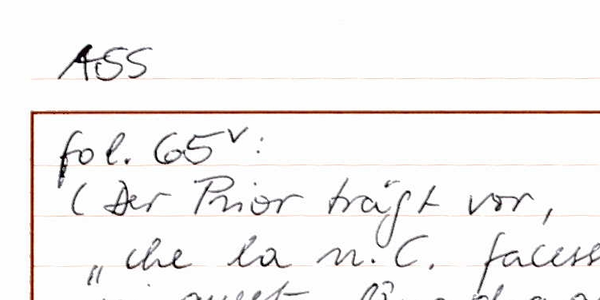 ASS
fol. 65v:
(Der Prior trägt vor,
„che la n. C. facess